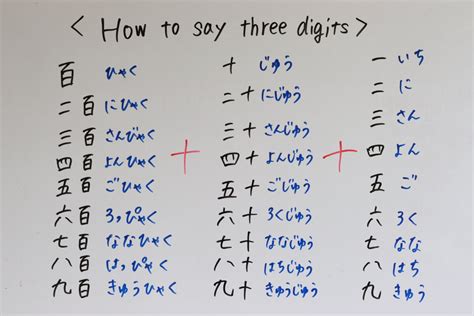 < How to say three digits >
百 ひゃく 十 じゅう 一 いち
二百 にひゃく 二十 にじゅう 二 に
三百 さんびゃく 三十 さんじゅう 三 さん
四百 よんひゃく + 四十 よんじゅう + 四 よん
五百 ごひゃく 五十 ごじゅう 五 ご
六百 ろっぴゃく 六十 ろくじゅう 六 ろく
七百 ななひゃく 七十 ななじゅう 七 なな
八百 はっぴゃく 八十 はちじゅう 八 はち
九百 きゅうひゃく 九十 きゅうじゅう 九 きゅう